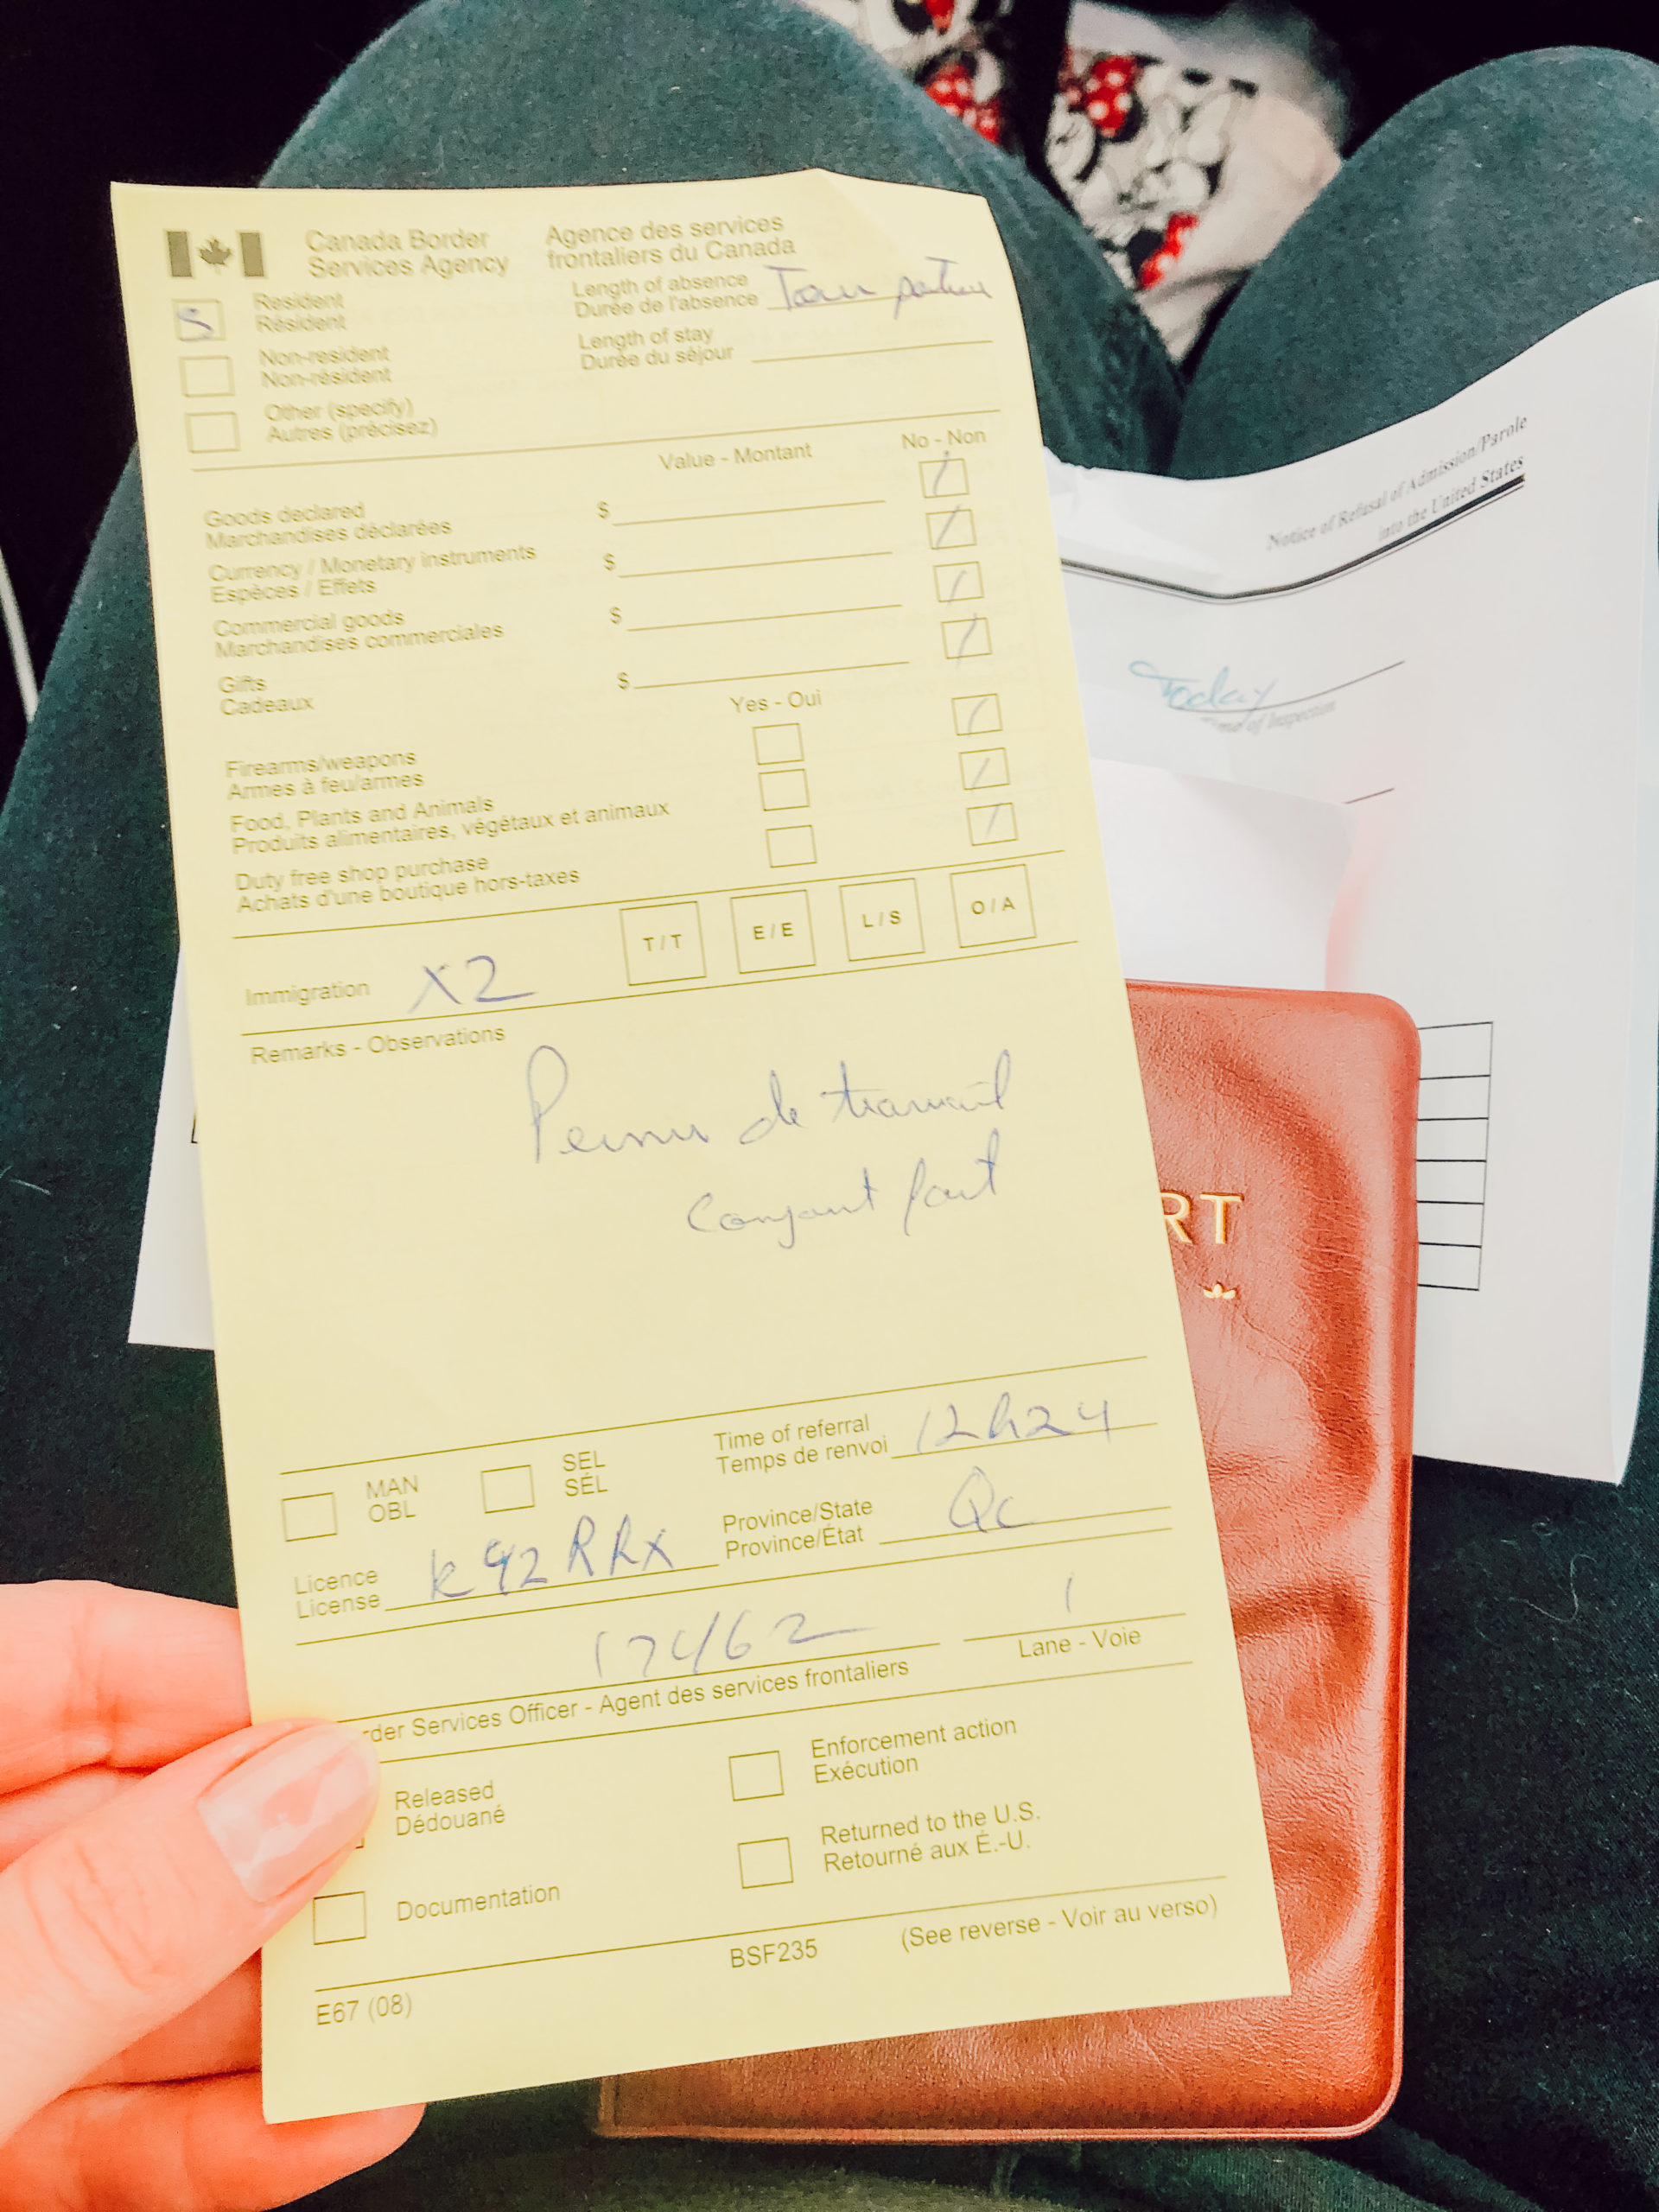 Canada Border
Services Agency
Agence des services
frontaliers du Canada
S
Resident
Résident
Length of absence
Durée de l'absence
Non-resident
Non-résident
Length of stay
Durée du séjour
Other (specify)
Autres (précisez)
Value - Montant
No - Non
Goods declared
Marchandises déclarées
$
Currency / Monetary instruments
Espèces / Effets
$
Commercial goods
Marchandises commerciales
$
Gifts
Cadeaux
$
Yes - Oui
Firearms/weapons
Armes à feu/armes
Food, Plants and Animals
Produits alimentaires, végétaux et animaux
Duty free shop purchase
Achats d'une boutique hors-taxes
Immigration X2
T / T
E / E
L / S
O / A
Remarks - Observations
Permis de travail
conjoint
MAN
OBL
SEL
SÉL
Time of referral
Temps de renvoi
12h24
Licence
License
K92RRX
Province/State
Province/État
Qc
17462
1
rder Services Officer - Agent des services frontaliers
Lane - Voie
Released
Dédouané
Enforcement action
Exécution
Documentation
Returned to the U.S.
Retourné aux É.-U.
BSF235
(See reverse - Voir au verso)
E67 (08)
Notice of Refusal of Admission/Parole
into the United States
Today
of Inspection
RT